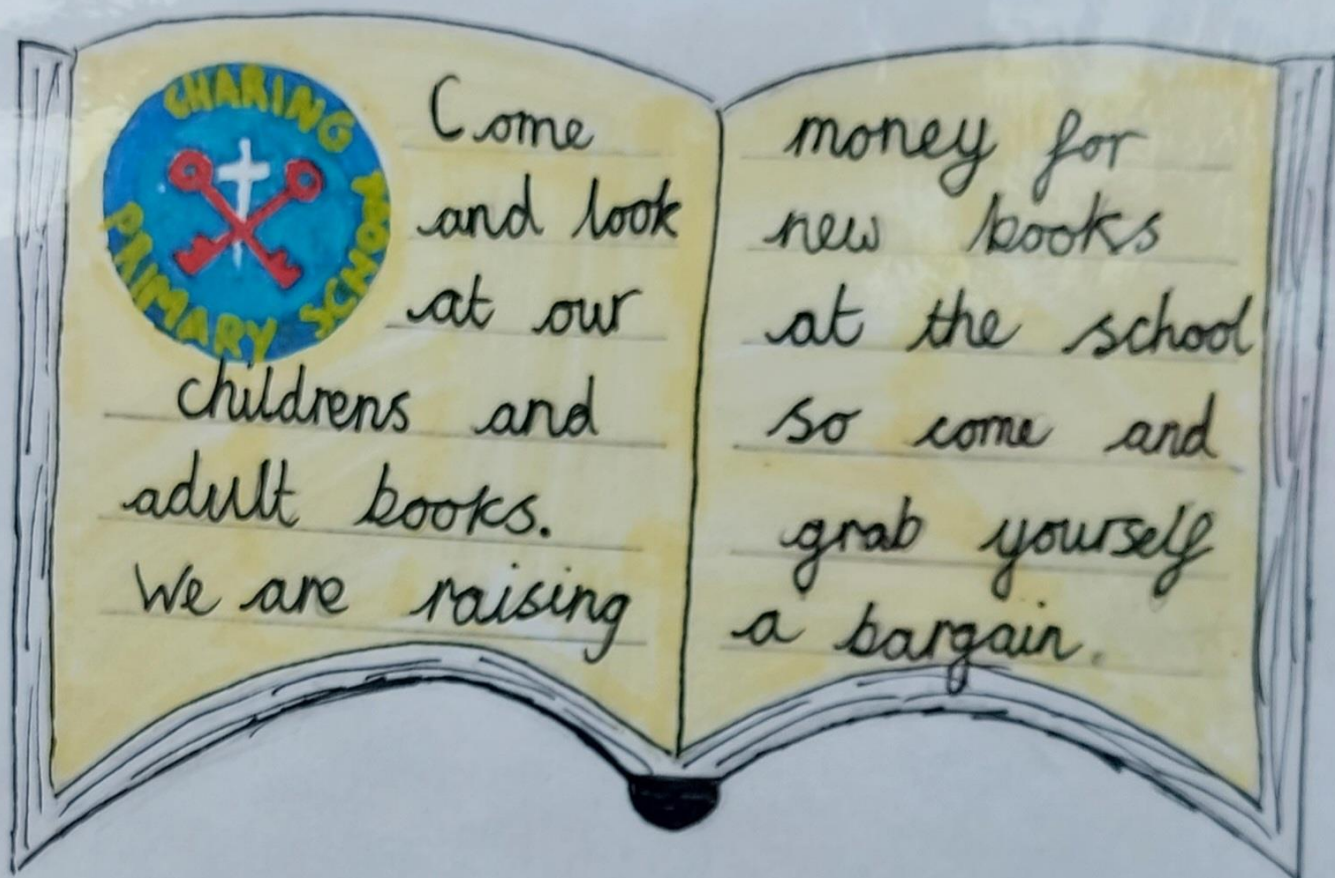 CHARING
PRIMARY SCHOOL
Come
and look
at our
childrens and
adult books.
We are raising
money for
new books
at the school
so come and
grab yourself
a bargain.